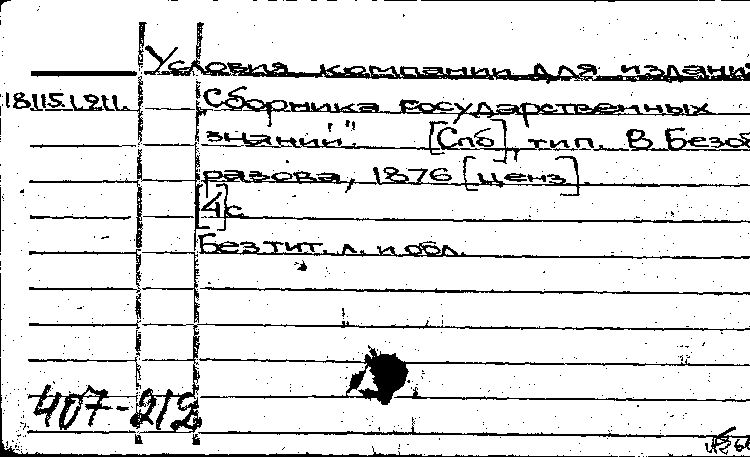 Условия компании для издани
18.115.1.211. „Сборника государственных
знаний". [Спб], тип. В Безоб
разова, 1876 [ценз].
[4]с
Без тит. л. и обл.
407-212